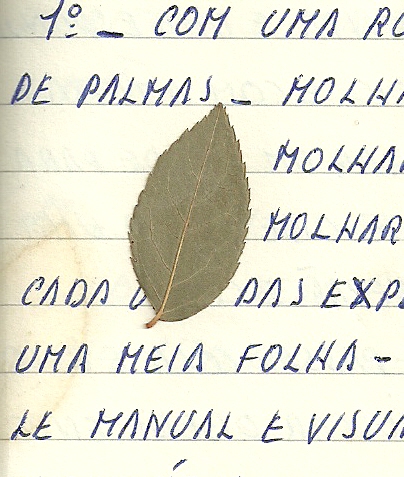 1º - COM UMA RO
DE PALMAS - MOLHA
MOLHA
MOLHAR
CADA U DAS EXP
UMA MEIA FOLHA -
LE MANUAL E VISUA